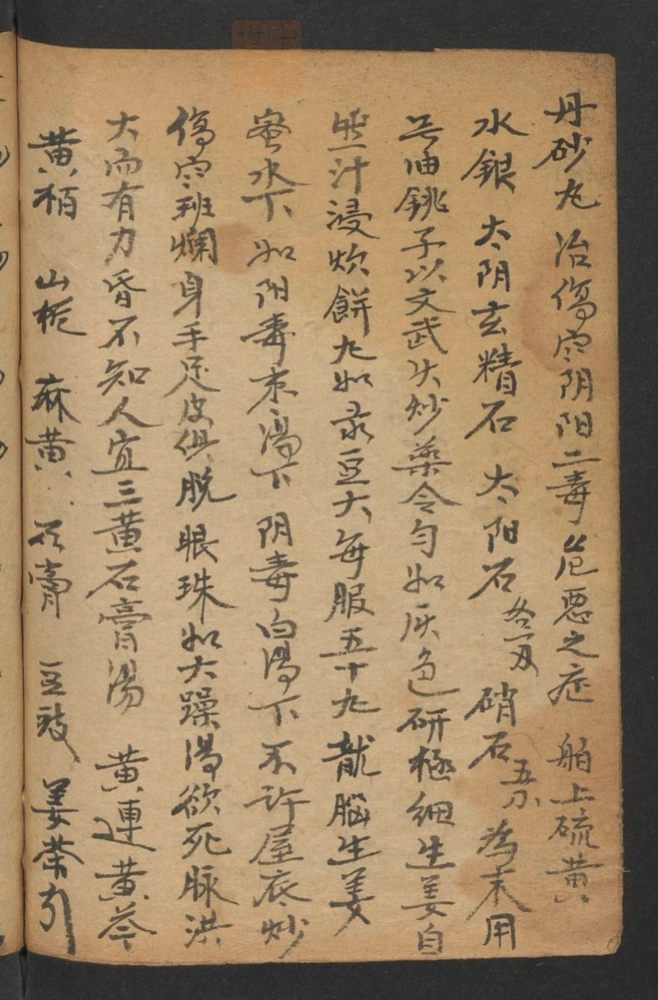 丹砂九治傷寒阴阳二毒危恶之症 舶上硫黄
水銀 太阴玄精石 太阳石 各一刄 硝石 五分 為末用
无油銚子以文武火炒藥令匀如灰色研極细生姜自
然汁浸炊餅丸如菉豆大每服五十九龍脑生姜
蜜水下如阳毒枣湯下阴毒白湯下不許屋底炒
傷寒班斕身手足皮俱脱眼珠如大躁渴欲死脉洪
大而有力昏不知人宜三黄石膏湯 黄連黄芩
黄栢 山栀 麻黄 石膏 豆豉 姜茶引